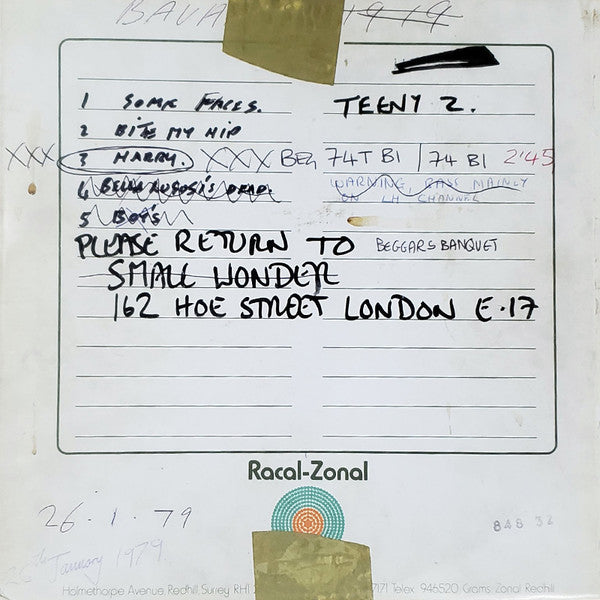 BAVA 1919
1 SOME FACES. TEENY 2.
2 BITE MY HIP
XXX 3 HARRY. XXX BEG 74T B1 / 74 B1 2'45
4 BELA LUGOSI'S DEAD. WARNING, BASS MAINLY
ON LH CHANNEL
5 BOYS
PLEASE RETURN TO BEGGARS BANQUET
SMALL WONDER
162 HOE STREET LONDON E.17
Racal-Zonal
26.1.79 848 32
26th January 1979
Holmethorpe Avenue, Redhill, Surrey RH1 7171 Telex 946520 Grams: Zonal Redhill